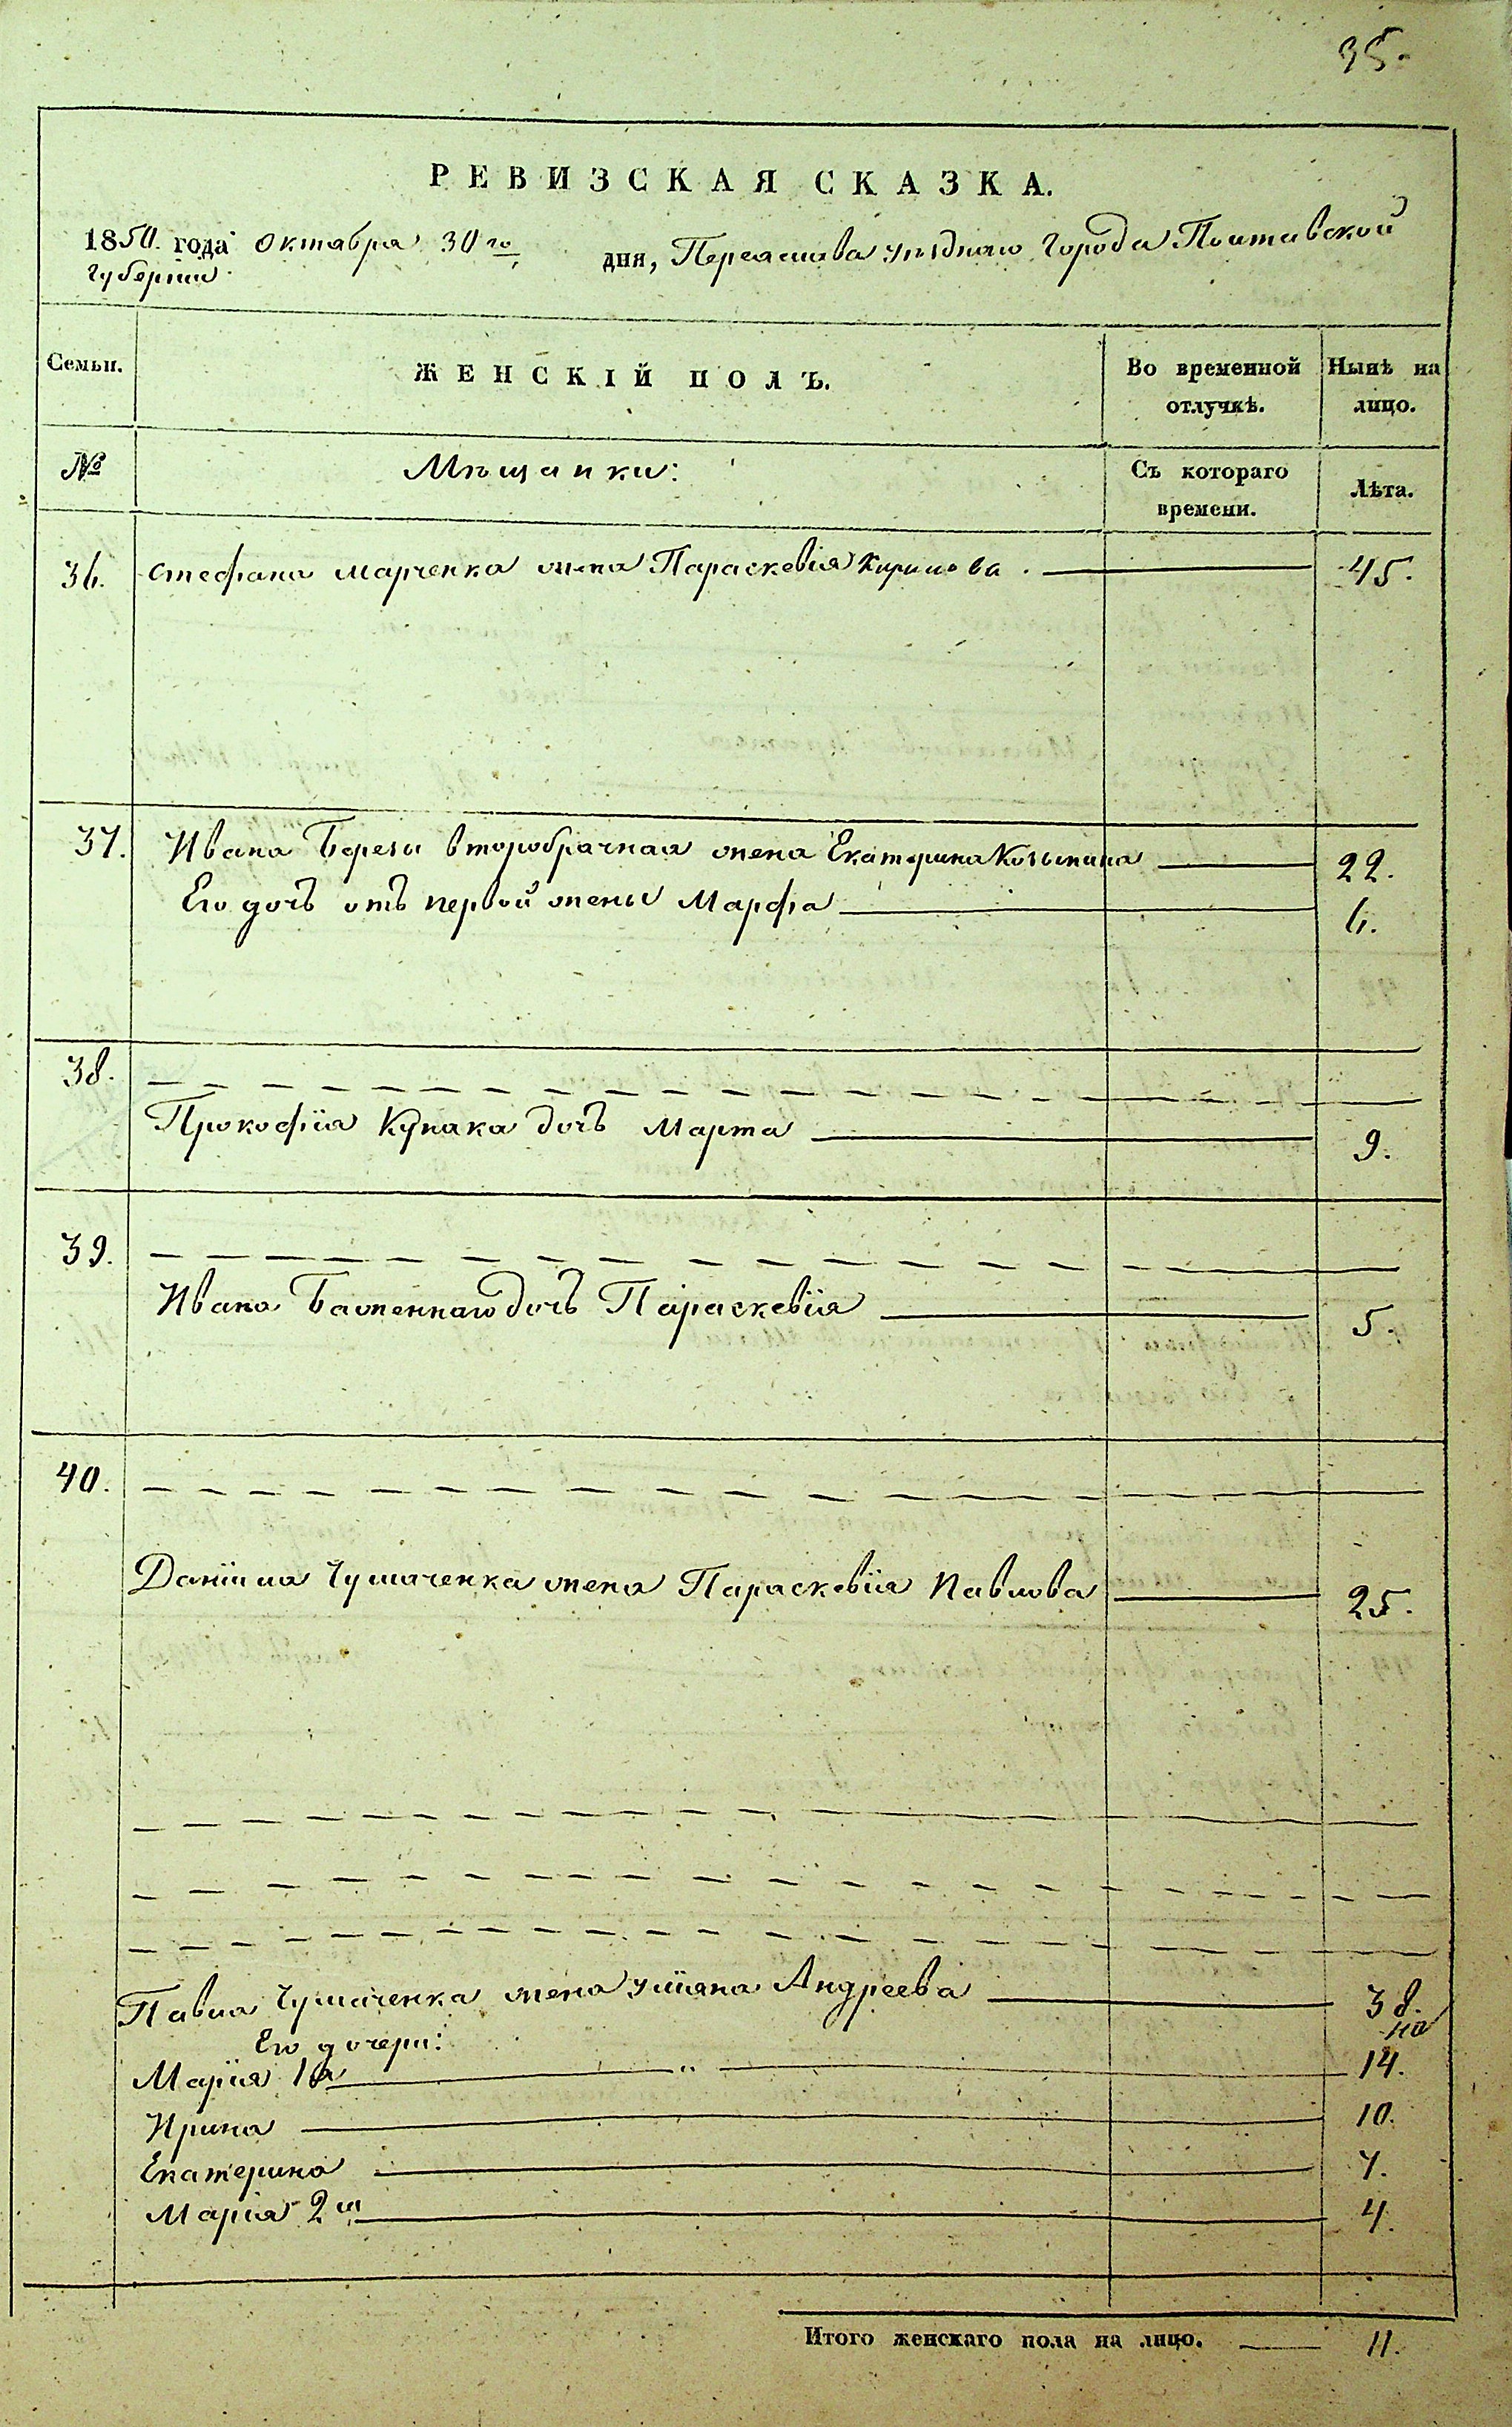 35.
РЕВИЗСКАЯ СКАЗКА.
1850. года Октября 30го дня, Переяслава уѣзднаго города Полтавской
губерніи.
Семьи. ЖЕНСКІЙ ПОЛЪ. Во временной отлучкѣ. Нынѣ на лицо.
№ Мѣщанки: Съ котораго времени. Лѣта.
36. Стефана Марченка жена Параскевія Кирилова. 45.
37. Ивана Березы второбрачная жена Екатерина 22.
Его дочь отъ первой жены Марфа 6.
38.
Прокофія Кулака дочь Марта 9.
39.
Ивана Баженнаго дочь Параскевія 5.
40.
Даніила Чумаченка жена Параскевія Павлова 25.
Павла Чумаченка жена Уліяна Андреева 38.
Его дочери:
Марія 1я " 14.
Ирина 10.
Екатерина 7.
Марія 2я 4.
Итого женскаго пола на лицо. 11.